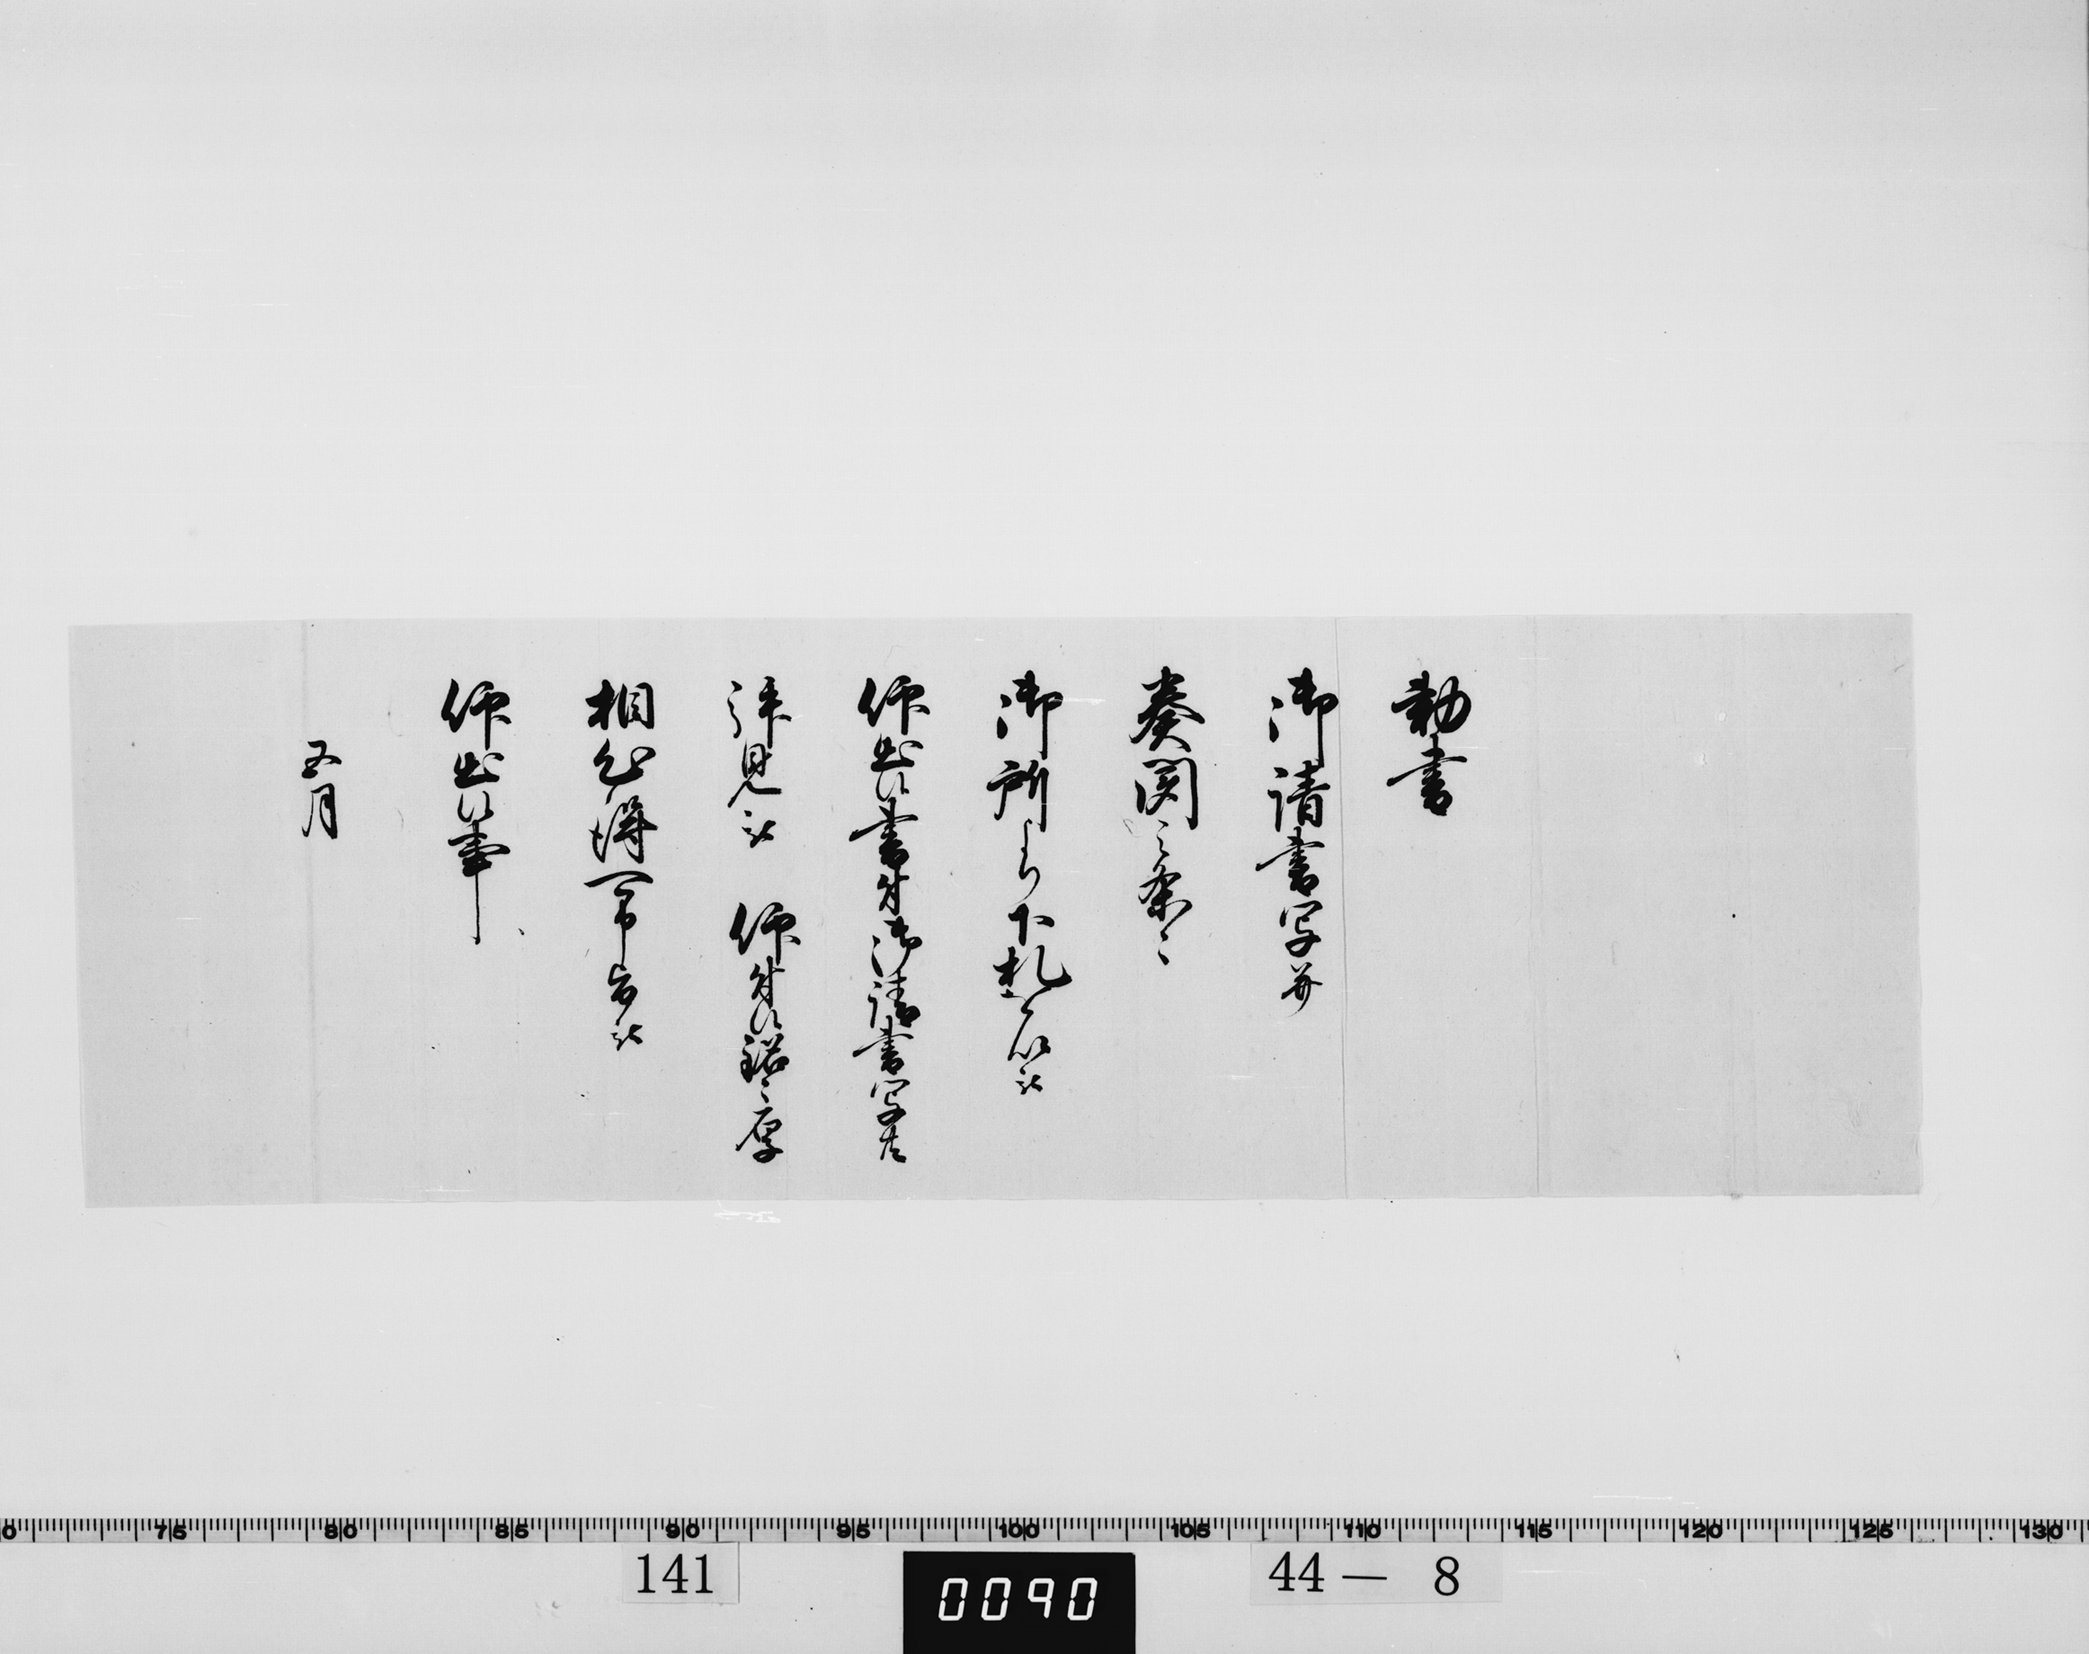 勅書
御請書写并
奏聞之条々
御所より下札を以被
仰出候書付御請書写共
拝見被 仰付候銘々厚
相心得可申旨被
仰出候事
五月
0 75 80 85 90 95 100 105 110 115 120 125 130
141
0090
44 — 8